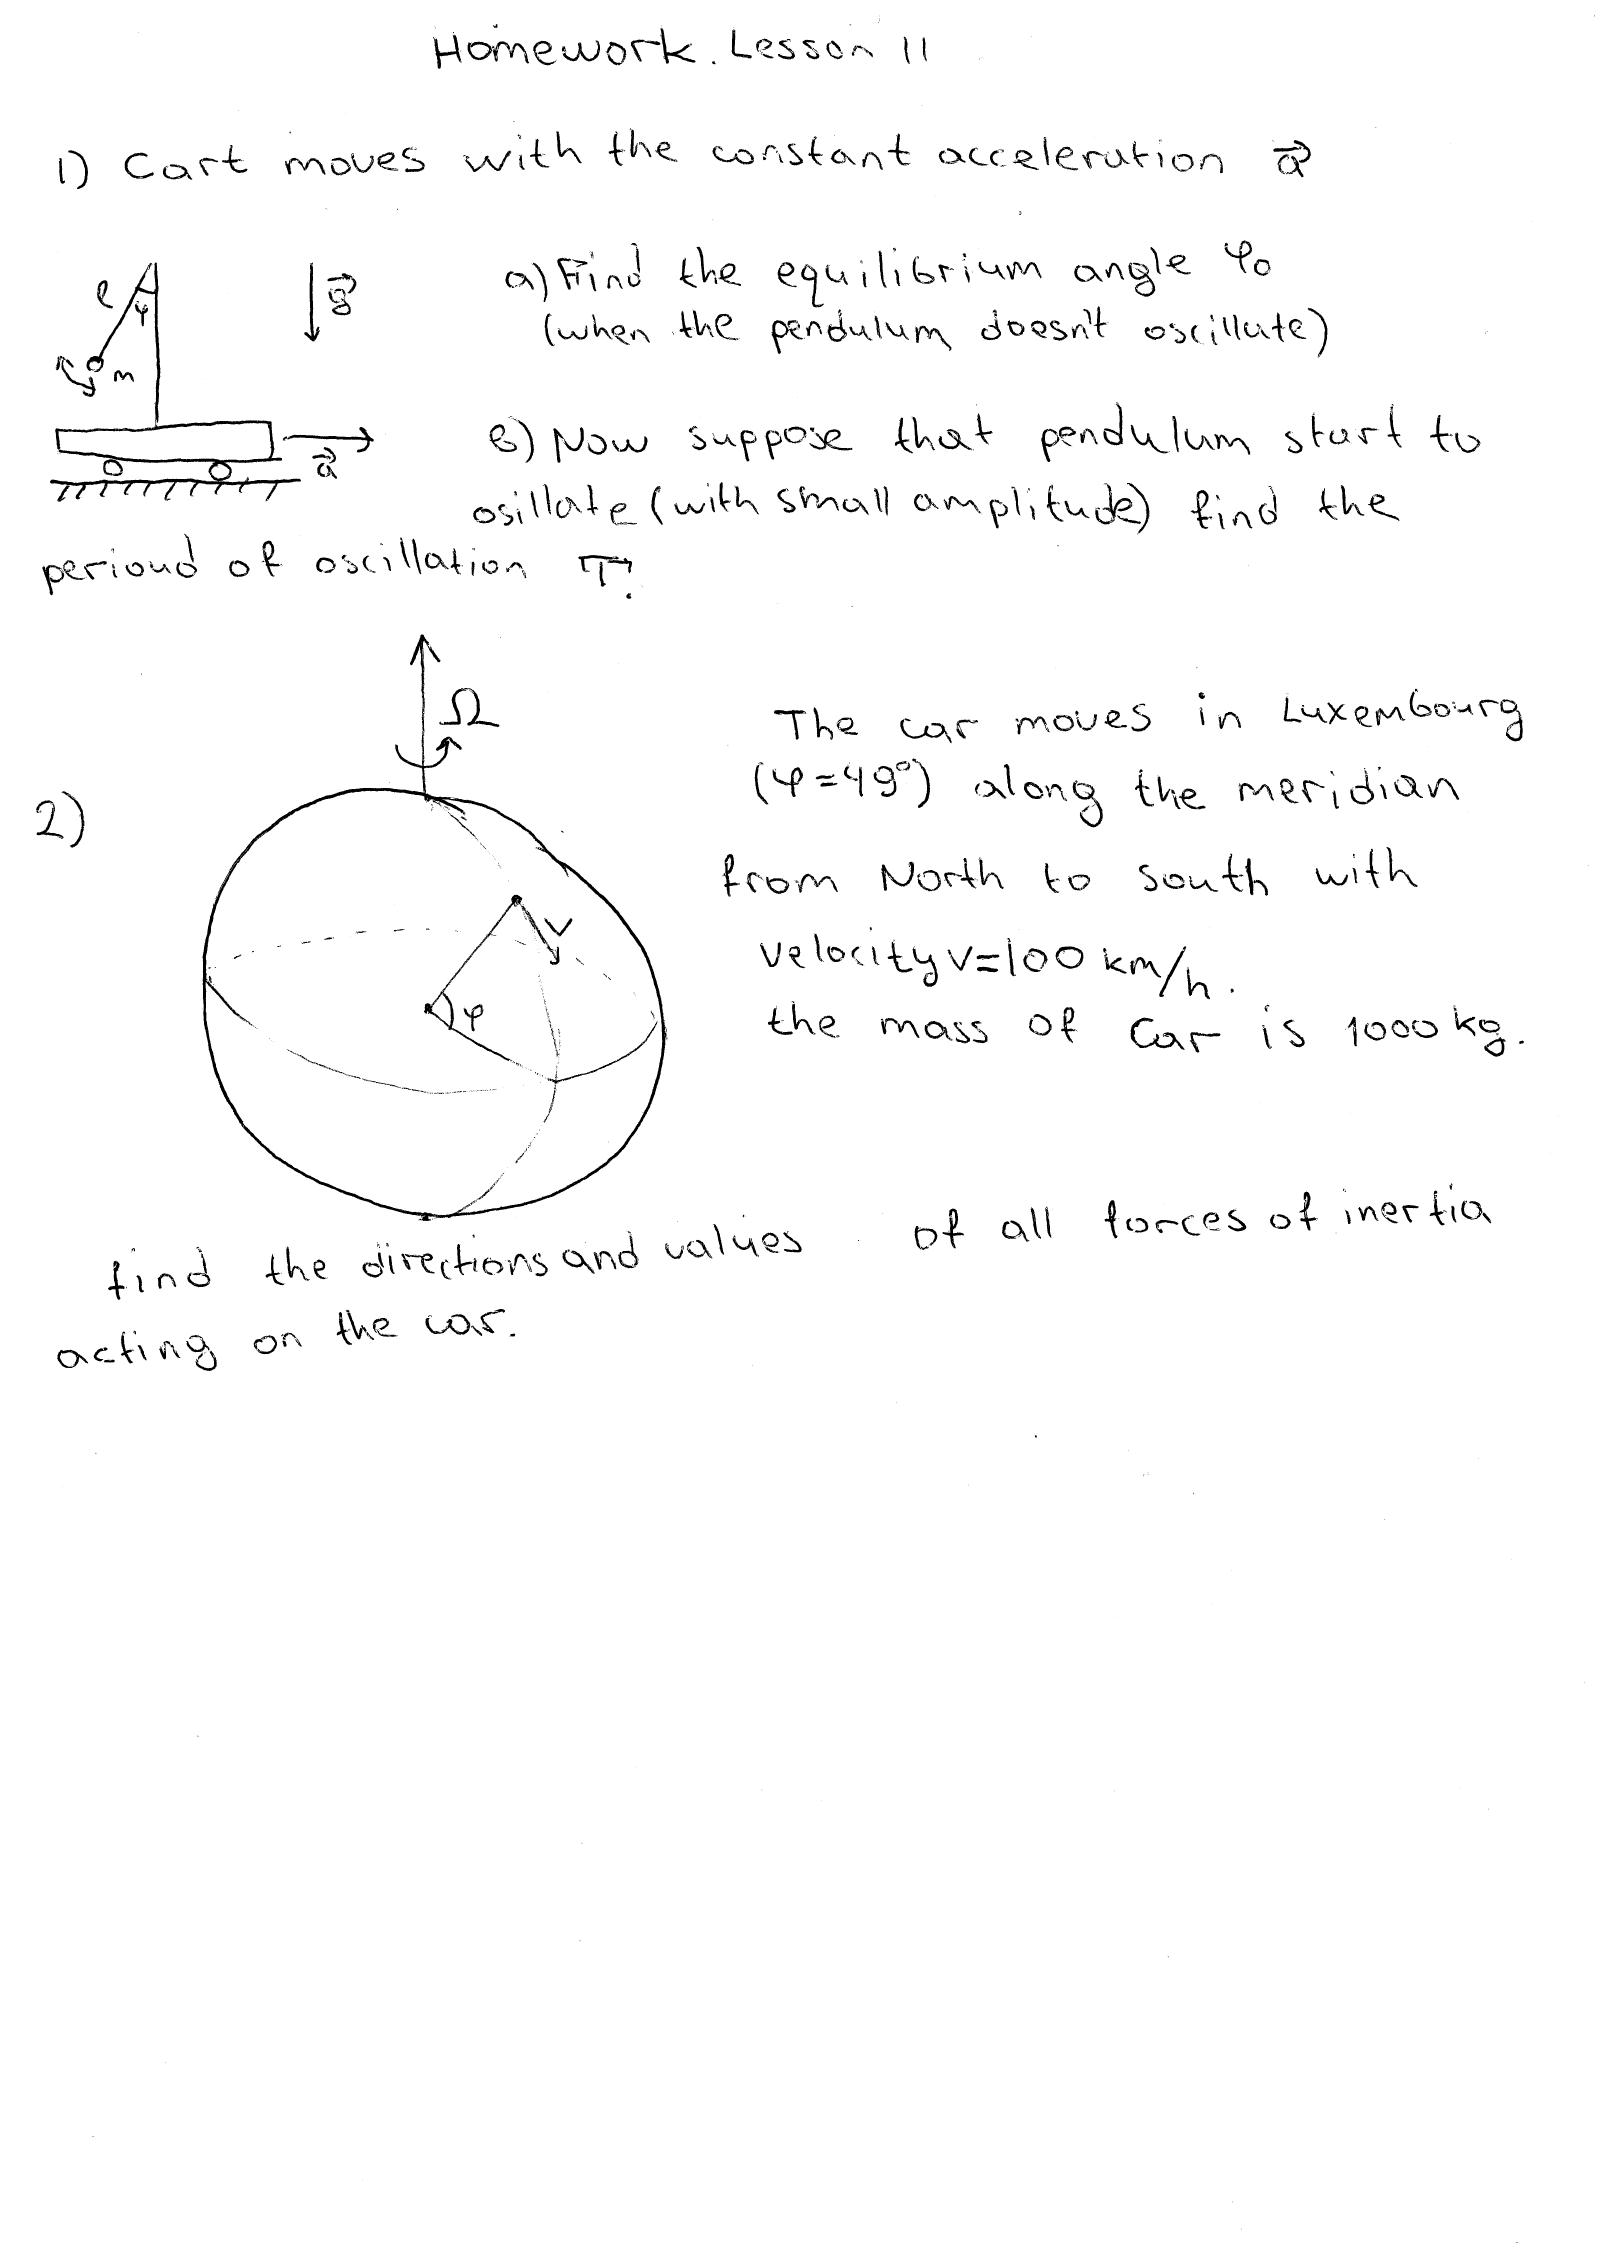 Homework. Lesson 11
1) Cart moves with the constant acceleration a⃗
a) Find the equilibrium angle φ₀
(when the pendulum doesn't oscillate)
l
φ
m
g⃗
a⃗
в) Now suppose that pendulum start to
osillate (with small amplitude) find the
perioud of oscillation T?
2)
Ω
V
φ
The car moves in Luxembourg
(φ=49°) along the meridian
from North to south with
velocity V=100 km/h.
the mass of Car is 1000 kg.
find the directions and values of all forces of inertia
acting on the car.